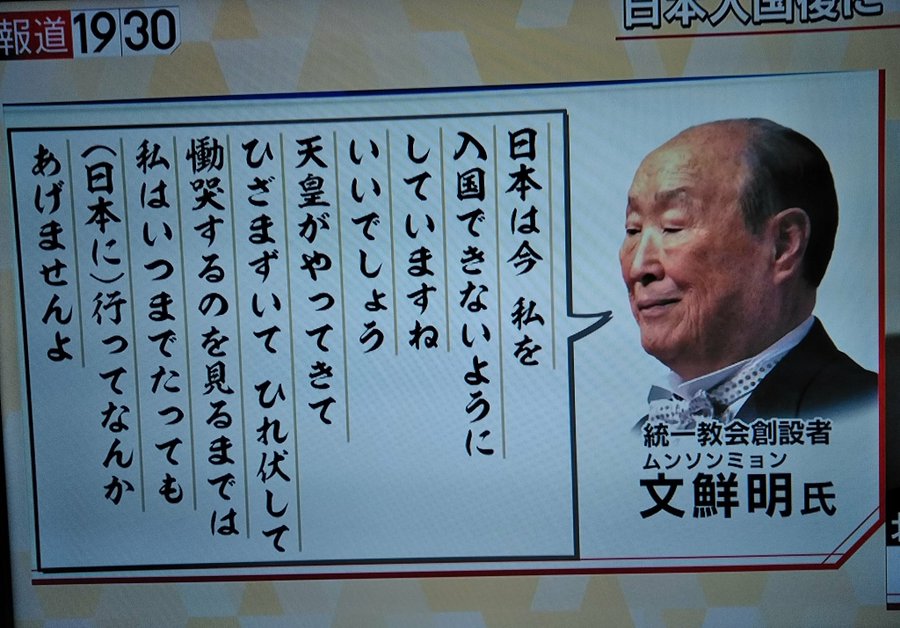 報道 19 30
日本入国後に
日本は今 私を
入国できないように
していますね
いいでしょう
天皇がやってきて
ひざまずいて ひれ伏して
慟哭するのを見るまでは
私はいつまでたっても
(日本に)行ってなんか
あげませんよ
統一教会創設者
ムンソンミョン
文鮮明氏